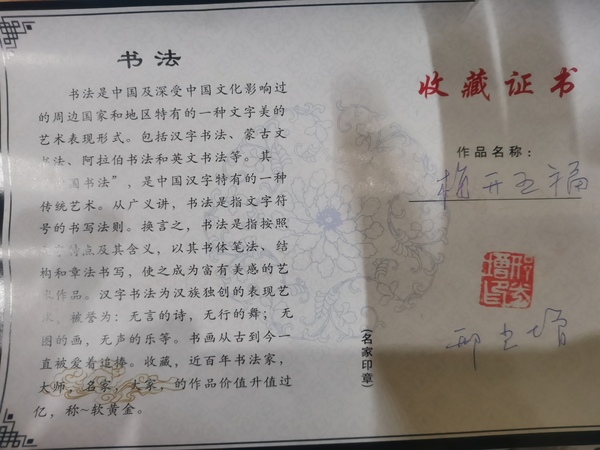 书法
书法是中国及深受中国文化影响过
的周边国家和地区特有的一种文字美的
艺术表现形式。包括汉字书法、蒙古文
书法、阿拉伯书法和英文书法等。其
国书法”，是中国汉字特有的一种
传统艺术。从广义讲，书法是指文字符
号的书写法则。换言之，书法是指按照
特点及其含义，以其书体笔法、结
构和章法书写，使之成为富有美感的艺
作品。汉字书法为汉族独创的表现艺
被誉为：无言的诗，无行的舞；无
图的画，无声的乐等。书画从古到今一
直被爱着追捧。收藏，近百年书法家，
大师，名家，大家，的作品价值升值过
亿，称~软黄金。
收藏证书
作品名称：
梅开五福
(名家印章)